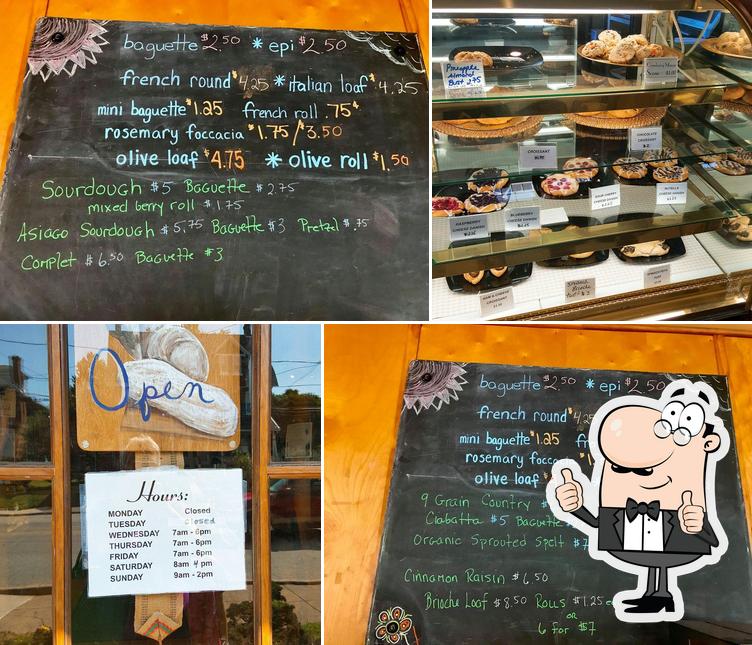 baguette $2.50 * epi $2.50
french round $4.25 * italian loaf $4.25
mini baguette $1.25 french roll .75¢
rosemary foccacia $1.75/$3.50
olive loaf $4.75 * olive roll $1.50
Sourdough $5 Baguette $2.75
mixed berry roll $1.75
Asiago Sourdough $5.75 Baguette $3 Pretzel $.75
Complet $6.50 Baguette $3
Pineapple
Almond
CROISSANT
CHOCOLATE
CROISSANT
RASPBERRY
CHEESE DANISH
BLUEBERRY
CHEESE DANISH
SOUR CHERRY
CHEESE DANISH
NUTELLA
CHEESE DANISH
HAM & CHEESE
CROISSANT
Open
Hours:
MONDAY Closed
TUESDAY closed
WEDNESDAY 7am - 6pm
THURSDAY 7am - 6pm
FRIDAY 7am - 6pm
SATURDAY 8am 4 pm
SUNDAY 9am - 2pm
baguette $2.50 * epi $2.50
french round $4.25
mini baguette $1.25
rosemary focca
olive loaf
9 Grain Country
Ciabatta $5 Baguette
Organic Sprouted Spelt $7
Cinnamon Raisin $6.50
Brioche Loaf $8.50 Rolls $1.25
or
6 for $7